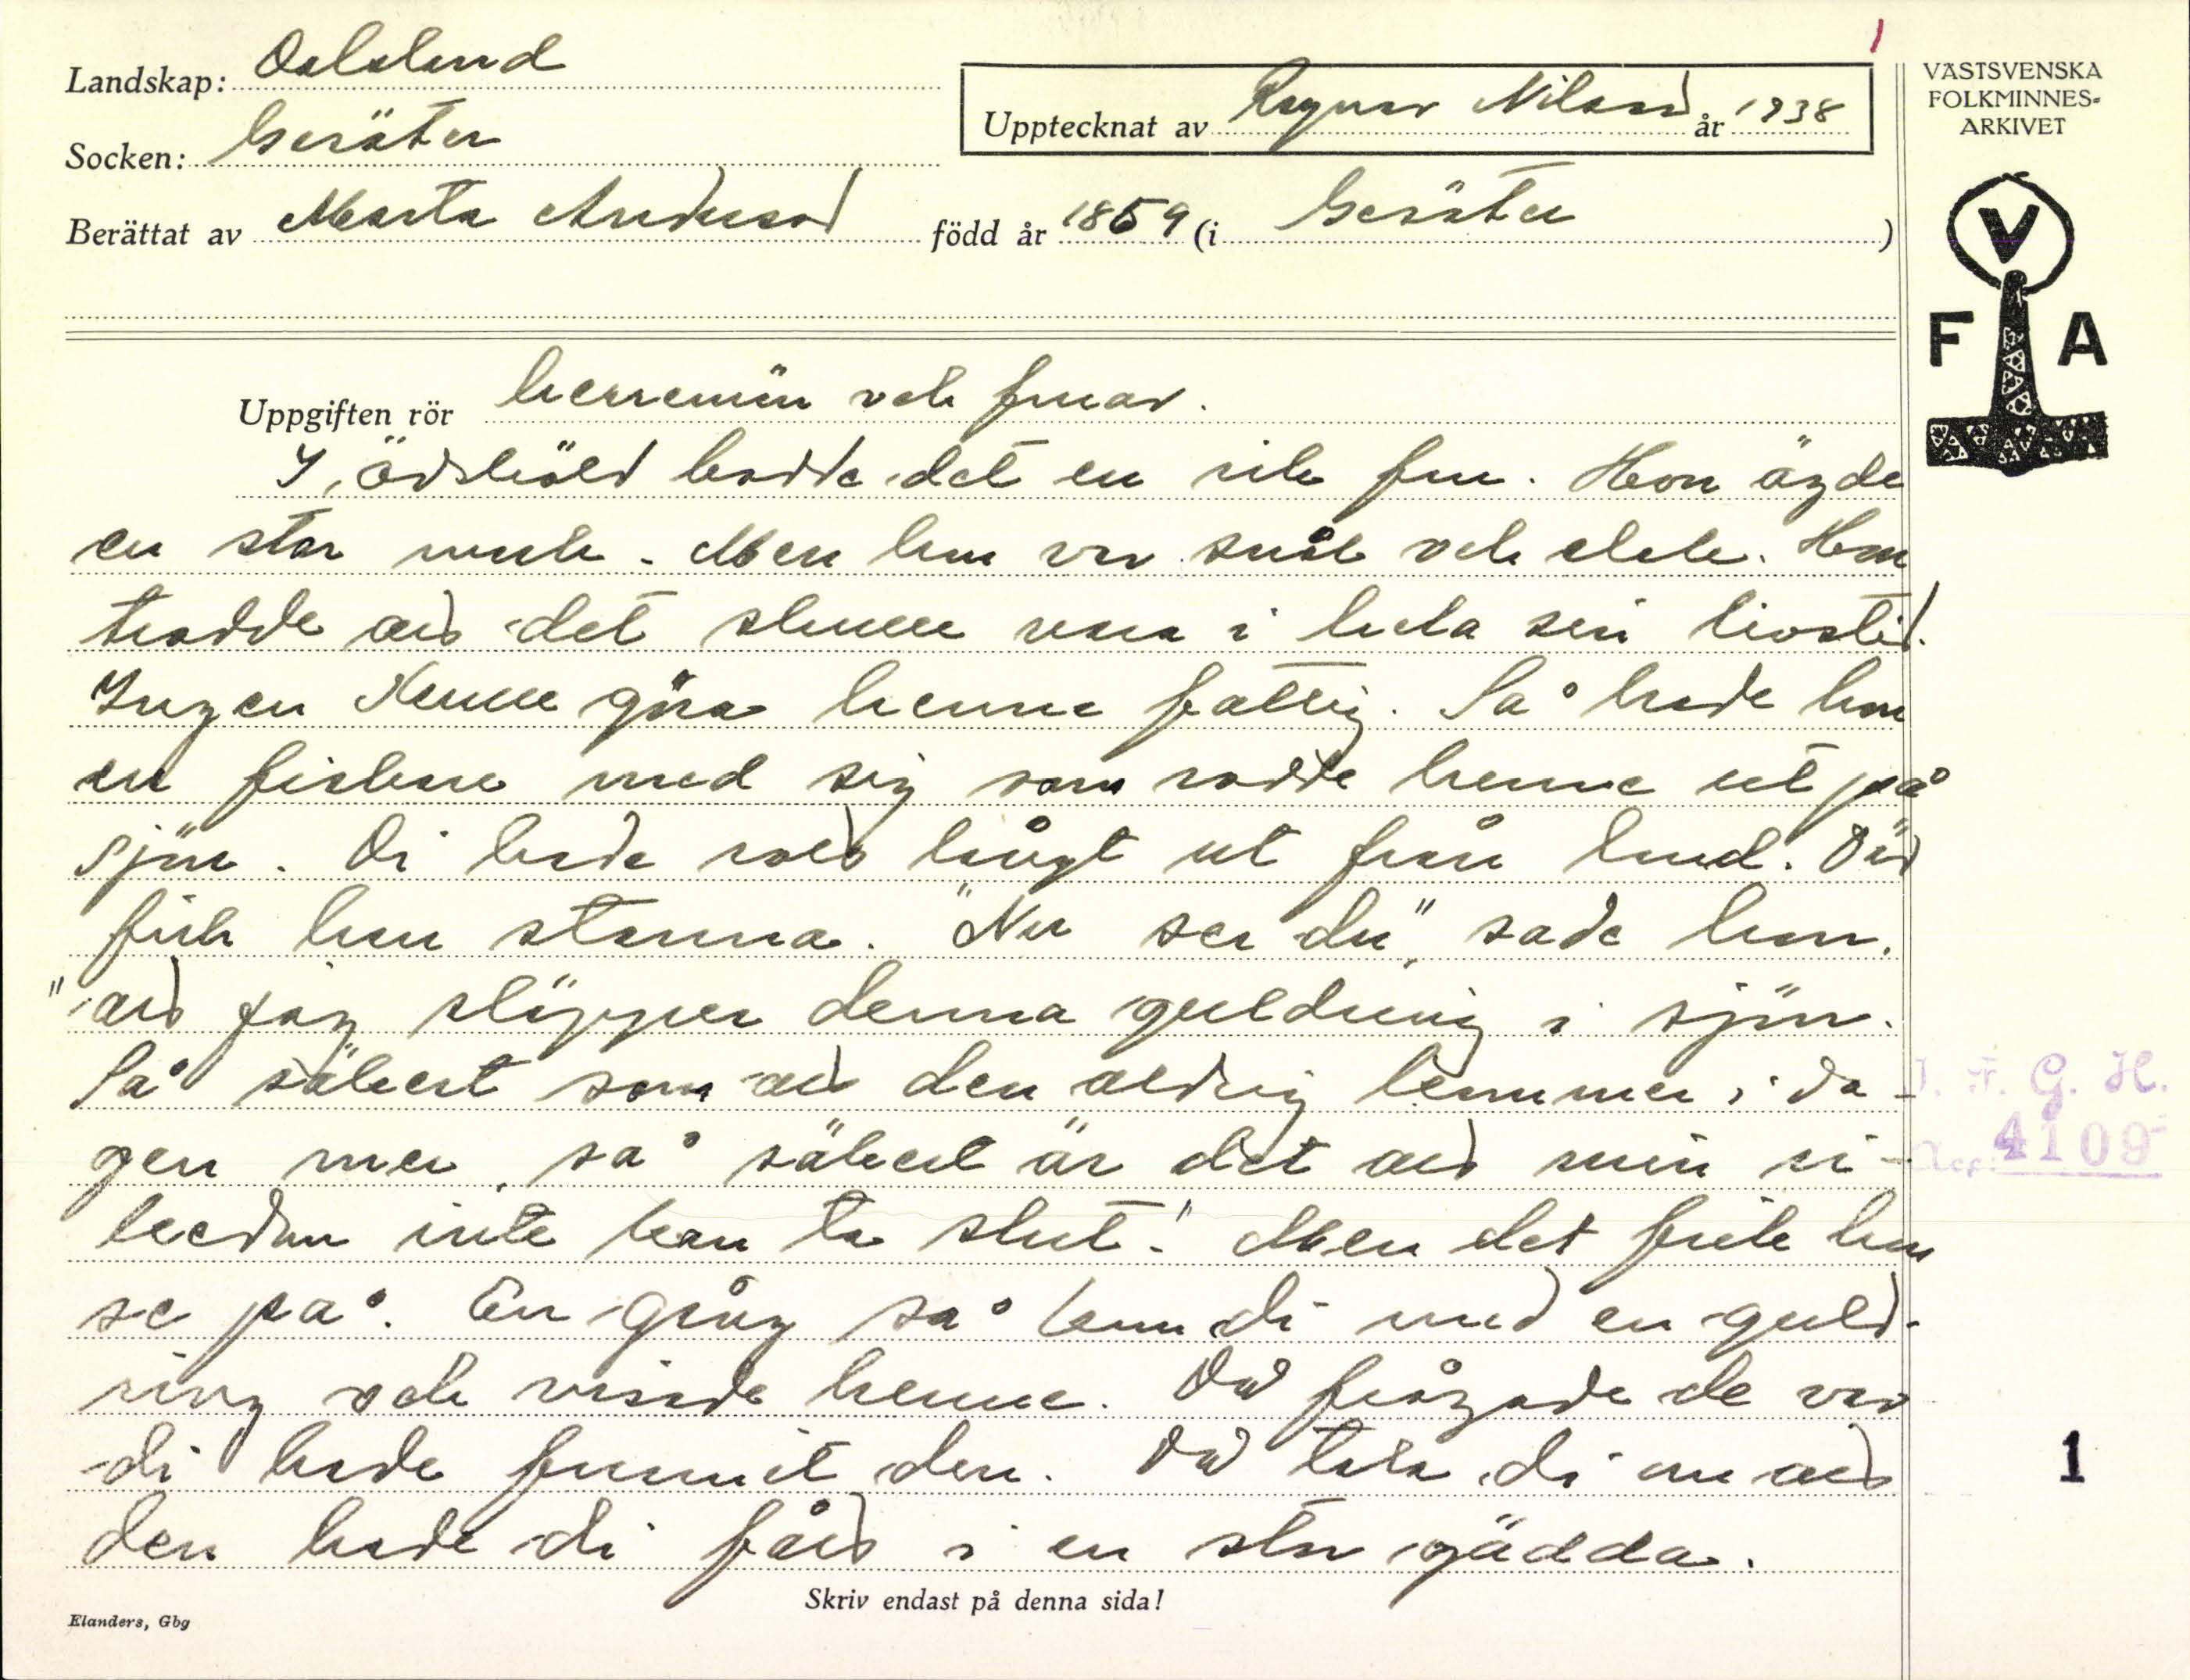 Landskap: Dalsland
Socken: Gesäter
Berättat av Marta Andersson född år 1859 (i Gesäter)
Upptecknat av Ragnar Nilsson år 1938
VÄSTSVENSKA
FOLKMINNES-
ARKIVET
V
F A
Uppgiften rör herremän och fruar.
I Ödsköld bodde det en rik fru. Hon ägde
en stor . Men hon var snål och elak. Hon
trodde att det skulle vara i hela sin livstid.
Ingen kunne göra henne fattig. Så hade hon
en fiskare med sig som rodde henne ut på
sjön. Di hade rott långt ut från land. Där
fick han stanna. "Nu ser du", sade hon,
"att jag släpper denna guldring i sjön.
Så säkert som att den aldrig kommer i da-
gen mer, så säkert är det att min ri-
kedom inte kan ta slut." Men det fick hon
se på. En gång så kom di med en guld-
ring och visade henne. Då frågade de var
di hade funnit den. Då tala di om att
den hade di fått i en stor gädda.
Skriv endast på denna sida!
Elanders, Gbg
I. F. G. H.
Acc. 4109
1